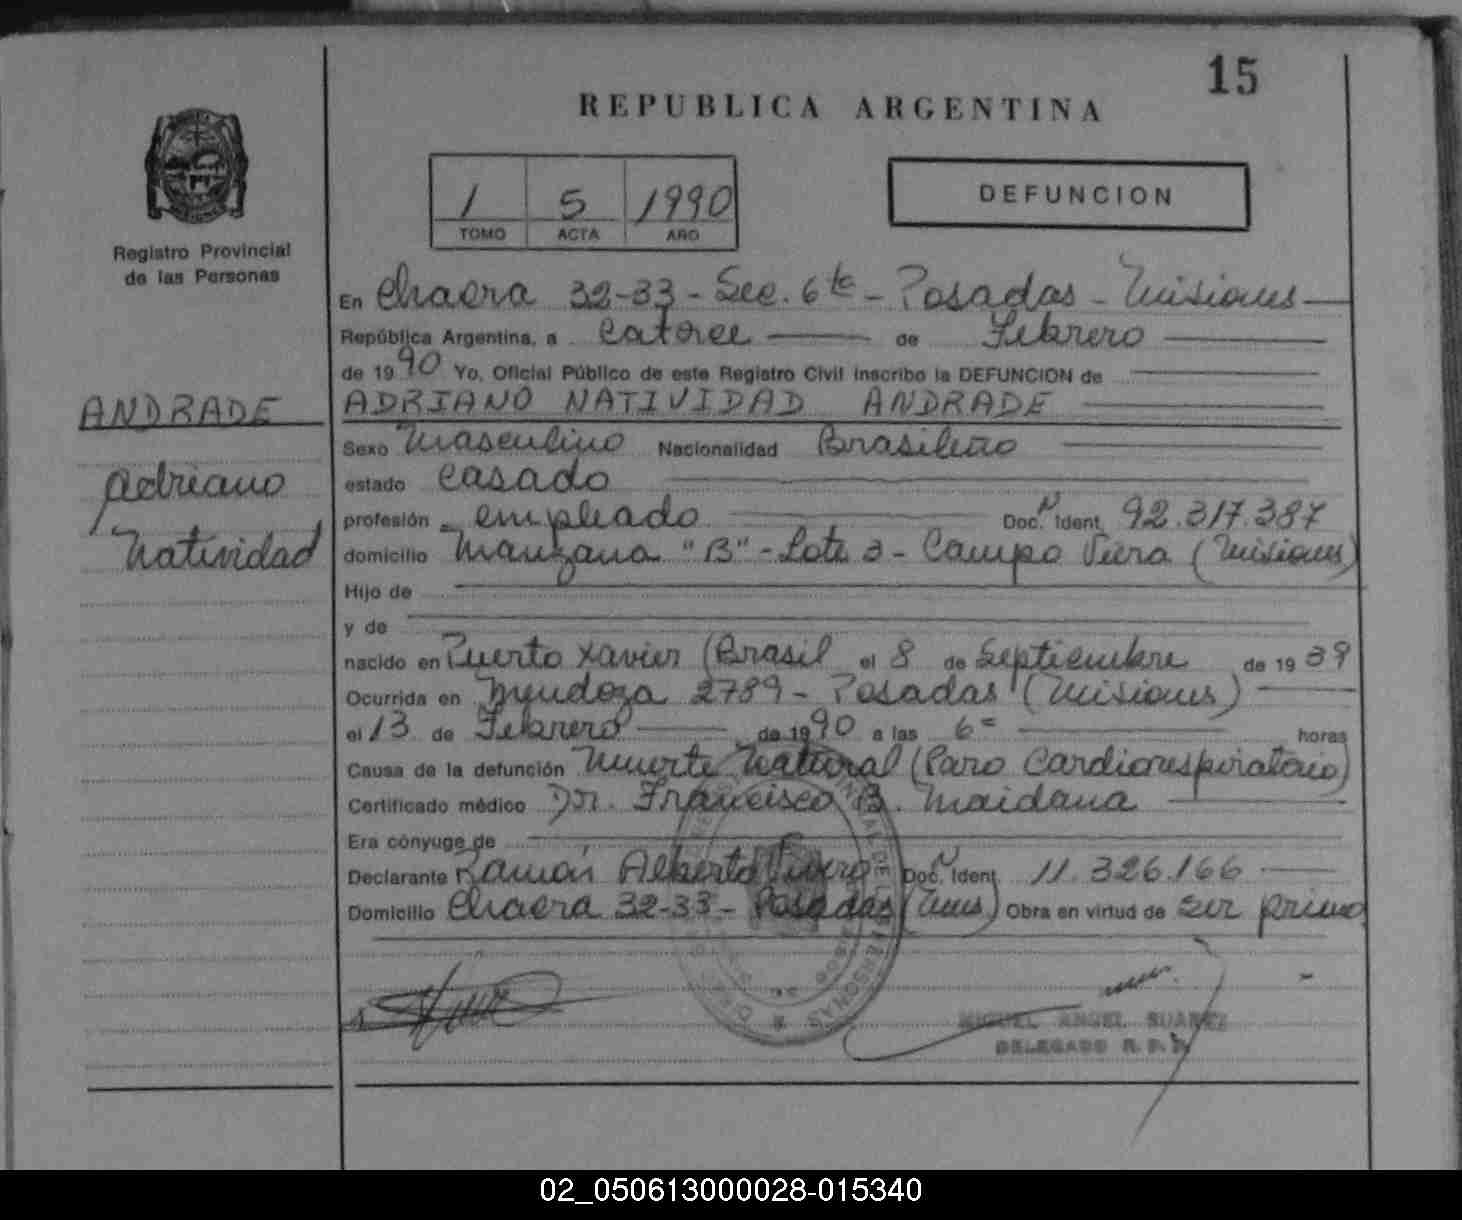 15
REPUBLICA ARGENTINA
1 5 1990
TOMO ACTA AÑO
DEFUNCION
Registro Provincial
de las Personas
En Chacra 32-33 - Sec. 6ta - Posadas - Misiones
República Argentina, a catorce de Febrero
de 1990 Yo, Oficial Público de este Registro Civil inscribo la DEFUNCION de
ANDRADE
ADRIANO NATIVIDAD ANDRADE
Sexo Masculino Nacionalidad Brasileño
Adriano
estado casado
profesión empleado Doc. N Ident. 92.317.387
Natividad
domicilio Manzana "B" - Lote 3 - Campo Viera (Misiones)
Hijo de
y de
nacido en Puerto Xavier (Brasil el 8 de Septiembre de 1939
Ocurrida en Mendoza 2789 - Posadas (Misiones)
el 13 de Febrero de 1990 a las 6= horas
Causa de la defunción Muerte Natural (Paro Cardiorespiratorio)
Certificado médico Dr. Francisco B. Maidana
Era cónyuge de
Declarante Ramón Alberto Doc. N Ident. 11.326.166
Domicilio Chacra 32-33 - Posadas (Mnes) Obra en virtud de ser primo
MIGUEL ANGEL SUAREZ
DELEGADO R. P. P.
02_050613000028-015340